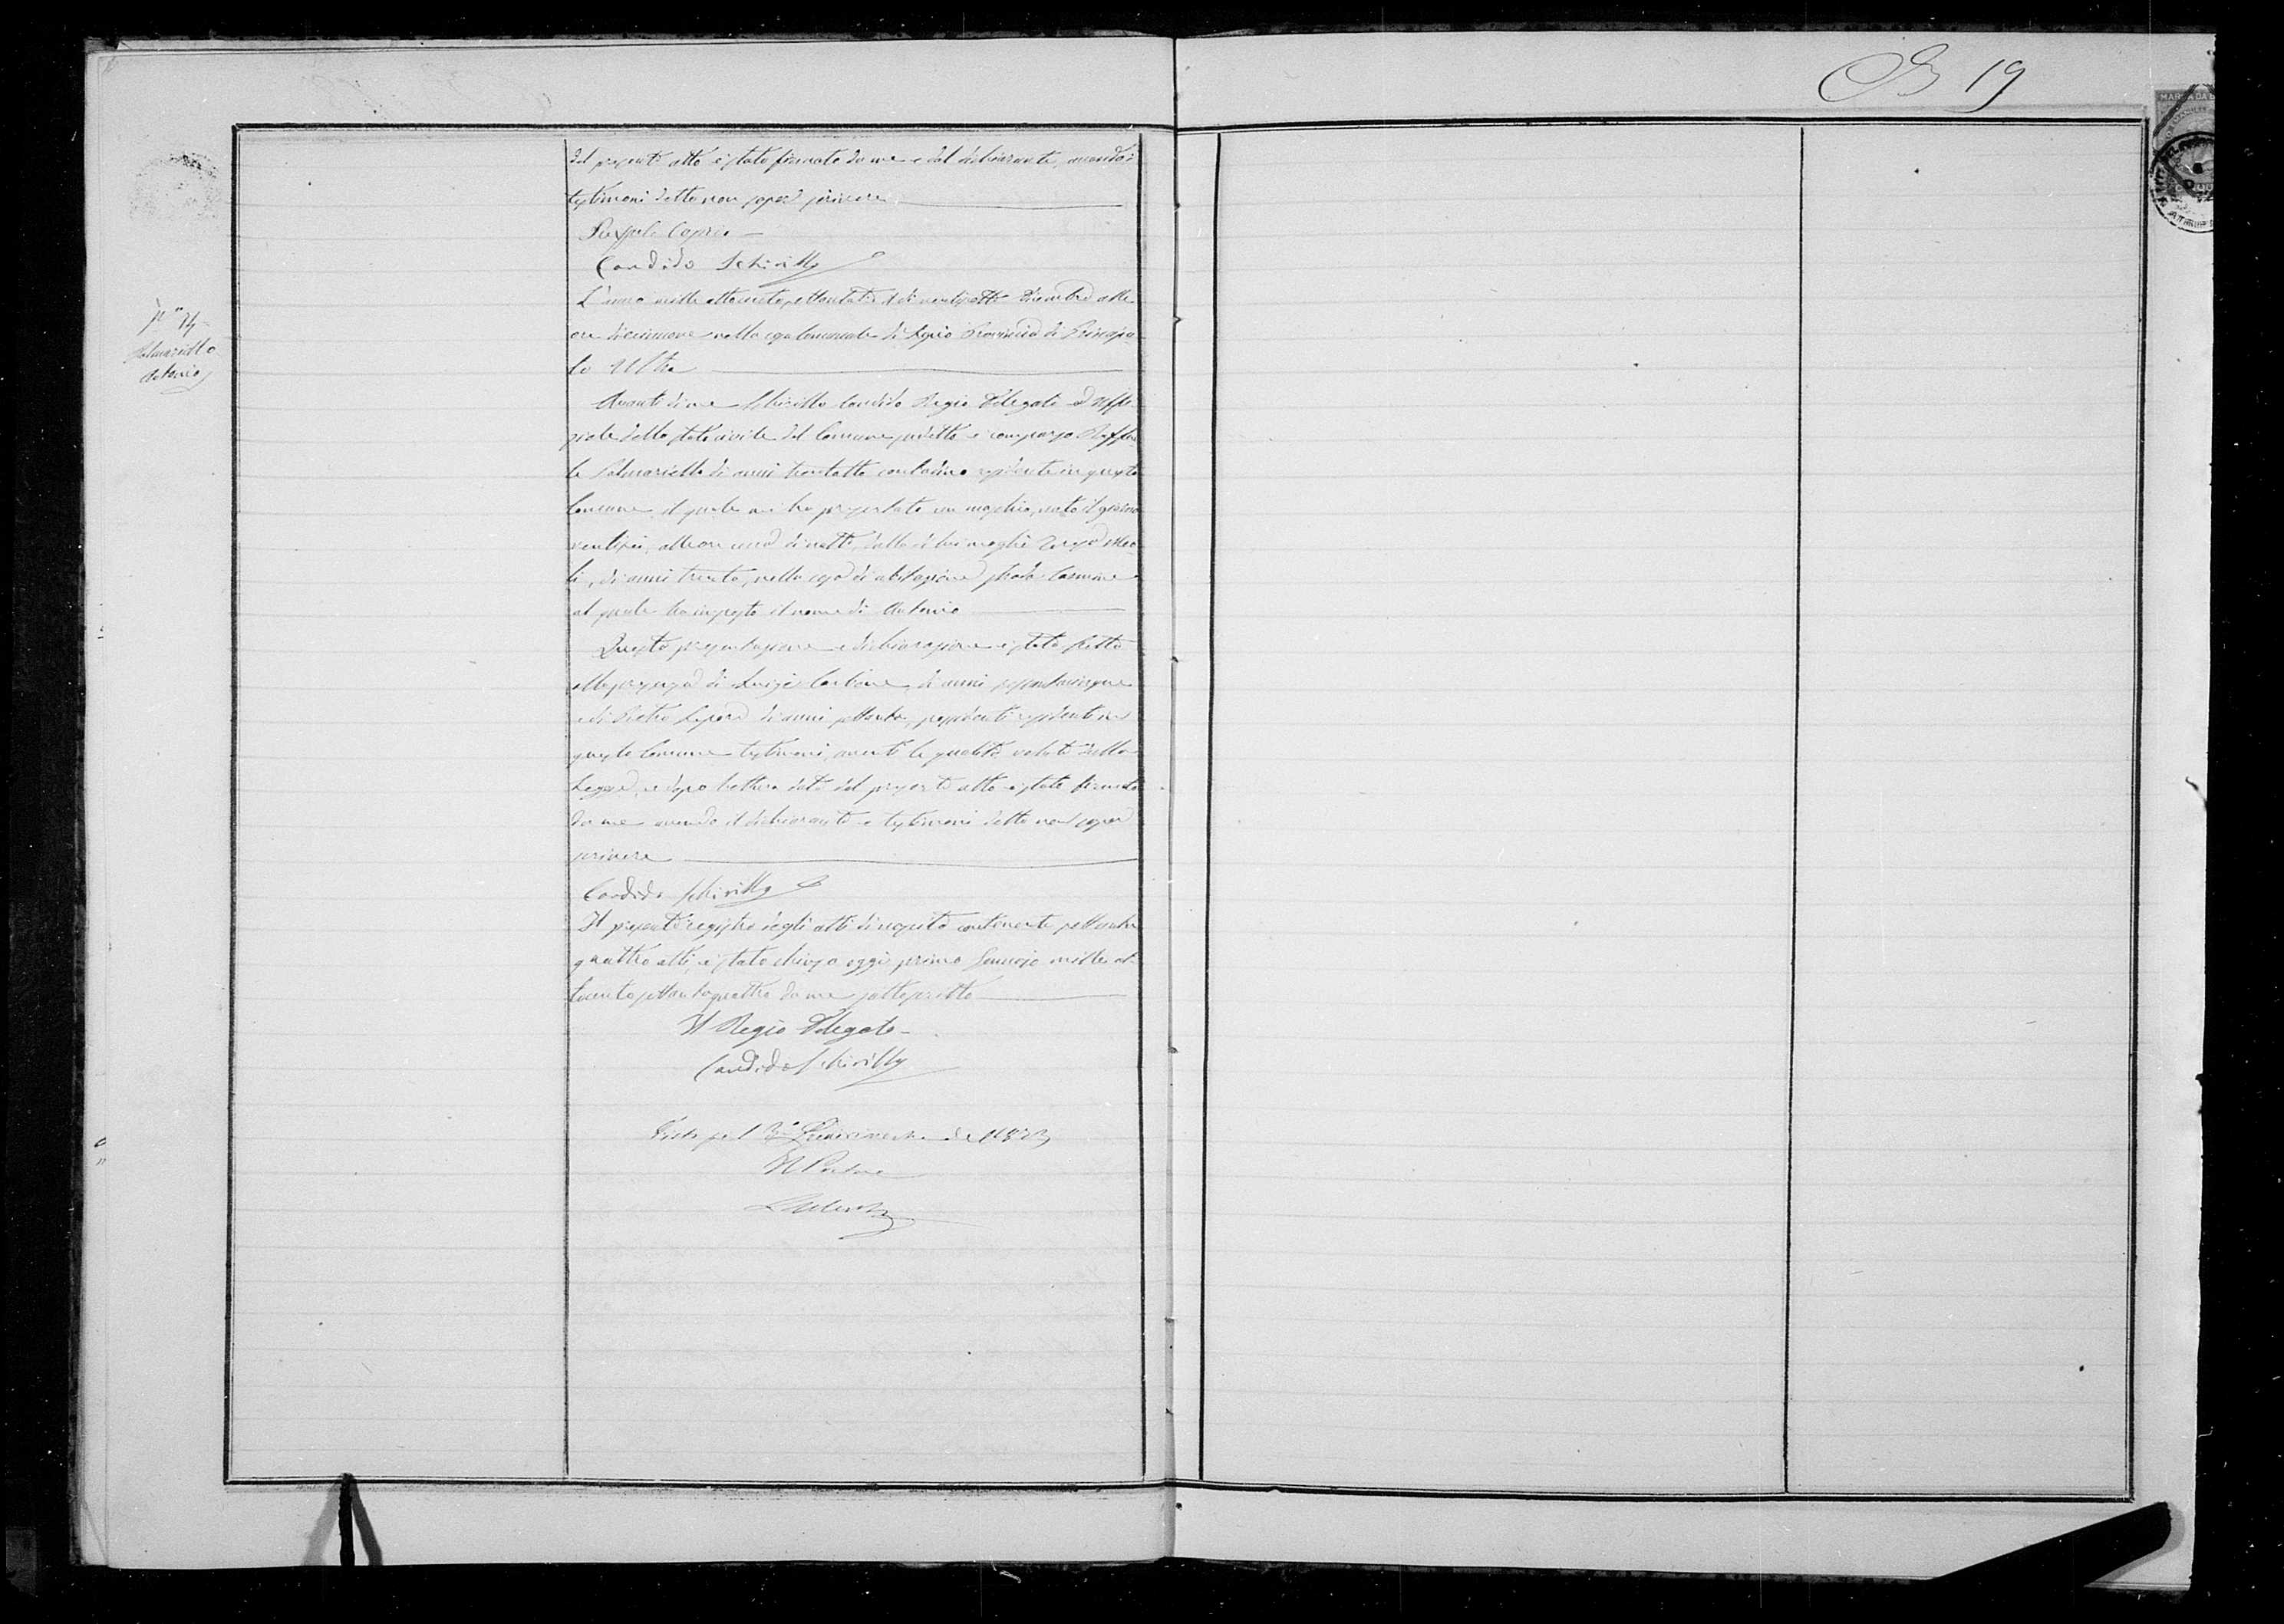 B 19
MARCA DA B
del presente atto è stato firmato da me e dal dichiarante, avendo i
testimoni detto non saper scrivere
Pasquale Caprio
Candido Schirillo
N° 74
Palmariello
Antonio
L'anno mille ottocento settantatre il dì ventisette Dicembre alle
ore diecinnove nella casa Comunale di Provincia di Principa
to Ultra
Avanti di me Schirillo Candido Regio Delegato ed Uffi
ziale dello stato civile del Comune suddetto è comparso Raffae
le Palmariello di anni trentotto contadino residente in questo
Comune il quale mi ha presentato un maschio, nato il giorno
ventisei, alle ore una di notte, dalla di lui moglie Teresa Meo
li, di anni trenta, nella casa di abitazione strada
al quale ha imposto il nome di Antonio
Questa presentazione e dichiarazione è stata fatta
alla presenza di Luigi Carbone, di anni sessantacinque
e di Pietro di anni settanta, residenti in
questo Comune testimoni aventi le qualità volute dalla
Legge, e dopo lettura data del presente atto è stato firmato
da me avendo il dichiarante e testimoni detto non saper
scrivere
Candido Schirillo
Il presente registro degli atti di nascita contenente settanta
quattro atti, è stato chiuso oggi primo Gennajo mille ot
tocento settantaquattro da me sottoscritto
Il Regio Delegato
Candido Schirillo
Visto pel 3° Quadrimestre del 1873
Il Pretore